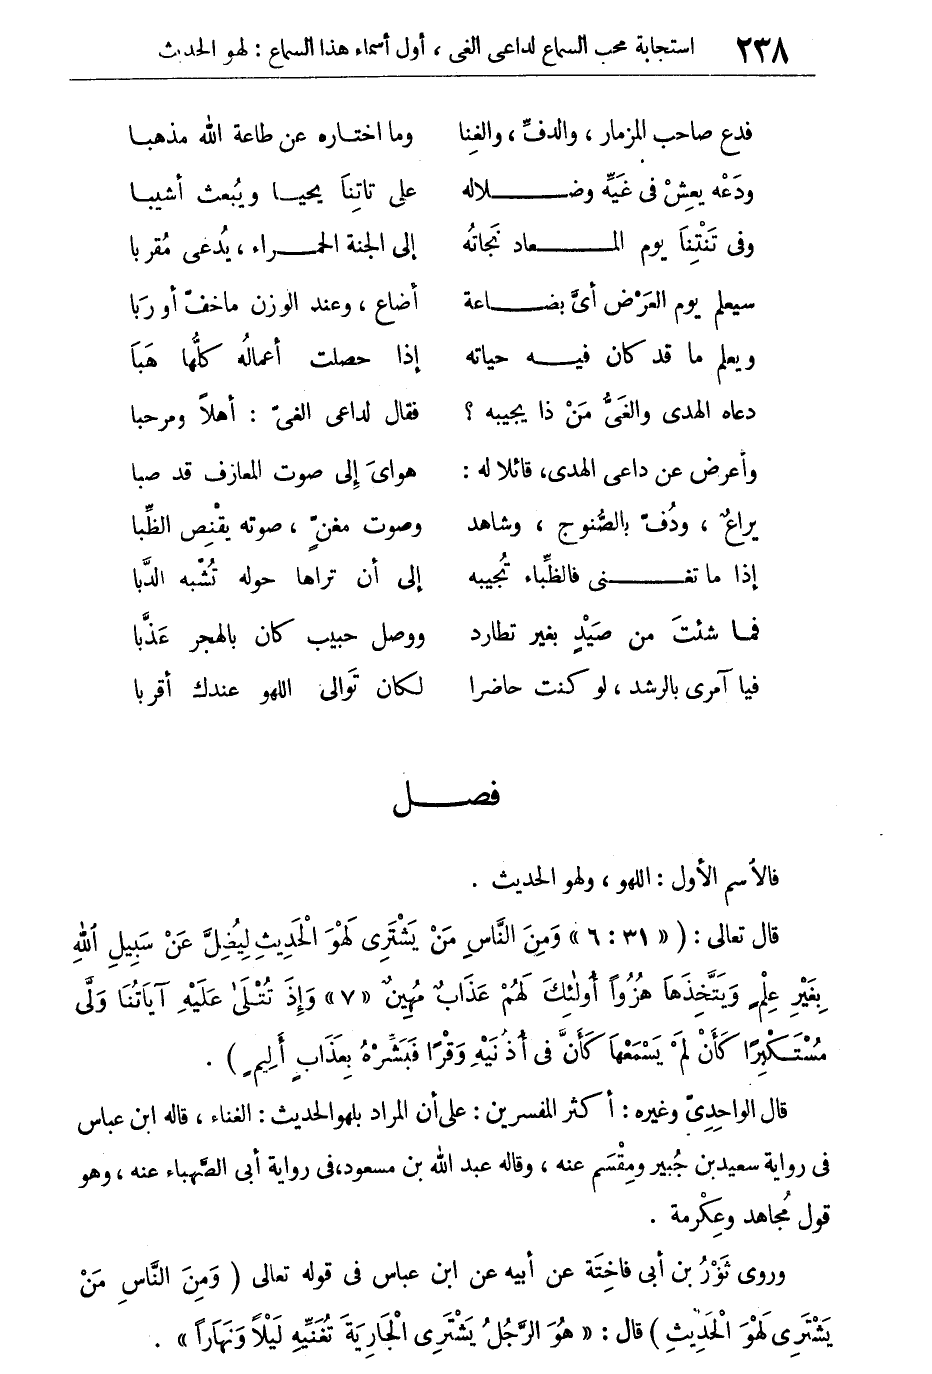 ٢٣٨ استجابة محب السماع لداعى الغى ، أول أسماء هذا السماع : لهو الحديث
فدع صاحب المزمار ، والدفِّ ، والغِنا وما اختاره عن طاعة الله مذهبا
ودَعْه يعِشْ فى غَيِّه وضلاله على تاتِنَا يحيا ويُبعث أشيبا
وفى تَنْتِنَا يوم المعاد نَجَاتُه إلى الجنة الحمراء ، يُدعى مُقربا
سيعلم يوم العَرْض أىَّ بضاعة أضاع ، وعند الوزن ماخفّ أو رَبَا
ويعلم ما قد كان فيه حياته إذا حصلت أعمالُه كلُّها هَبَا
دعاه الهدى والغَىُّ مَنْ ذا يجيبه ؟ فقال لداعى الغىّ : أهلاً ومرحبا
وأعرض عن داعى الهدى، قائلا له : هواىَ إلى صوت المعازف قد صبا
يراعٌ ، ودُفّ بالصُّنوج ، وشاهد وصوت مغنّ ٍ، صوته يقْنِص الظِّبا
إذا ما تغنى فالظِّباء تُجيبه إلى أن تراها حوله تُشْبه الدَّبا
فما شئتَ من صَيْدٍ بغير تطارد ووصل حبيب كان بالهجر عَذَّبا
فيا آمرى بالرشد ، لو كنت حاضرا لكان تَوالى اللهو عندك أقربا
فصل
فالأسم الأول : اللهو ، ولهو الحديث .
قال تعالى : ( « ٣١ : ٦ » وَمِنَ النَّاسِ مَنْ يَشْتَرِى لَهْوَ الْحَدِيثِ لِيُضِلَّ عَنْ سَبِيلِ اللهِ
بِغَيْرِ عِلْمٍ وَيَتَّخِذَهَا هُزُواً أُولٰئِكَ لَهُمْ عَذَابٌ مُهِينٌ « ٧ » وَإِذَ تُتْلَىٰ عَلَيْهِ آيَاتُنَا وَلَّى
مُسْتَكْبِرًا كَأَنْ لَمْ يَسْمَعْهَا كَأَنَّ فى أُذُنَيْهِ وَقْرًا فَبَشِّرْهُ بِعَذَابٍ أَلِيمٍ ) .
قال الواحدِىّ وغيره : أكثر المفسرين : على أن المراد بلهو الحديث : الغناء ، قاله ابن عباس
فى رواية سعيد بن جُبير ومِقْسَم عنه ، وقاله عبد الله بن مسعود،فى رواية أبى الصَّهباء عنه ، وهو
قول مُجاهد وعِكْرمة .
وروى ثَوْرُ بن أبى فاخِتَة عن أبيه عن ابن عباس فى قوله تعالى ( وَمِنَ النَّاسِ مَنْ
يَشْتَرِى لَهْوَ الْحَدِيثِ ) قال : « هُوَ الرَّجُلُ يَشْتَرِى الْجَارِيَةَ تُغَنِّيهِ لَيْلاً وَنَهَاراً » .